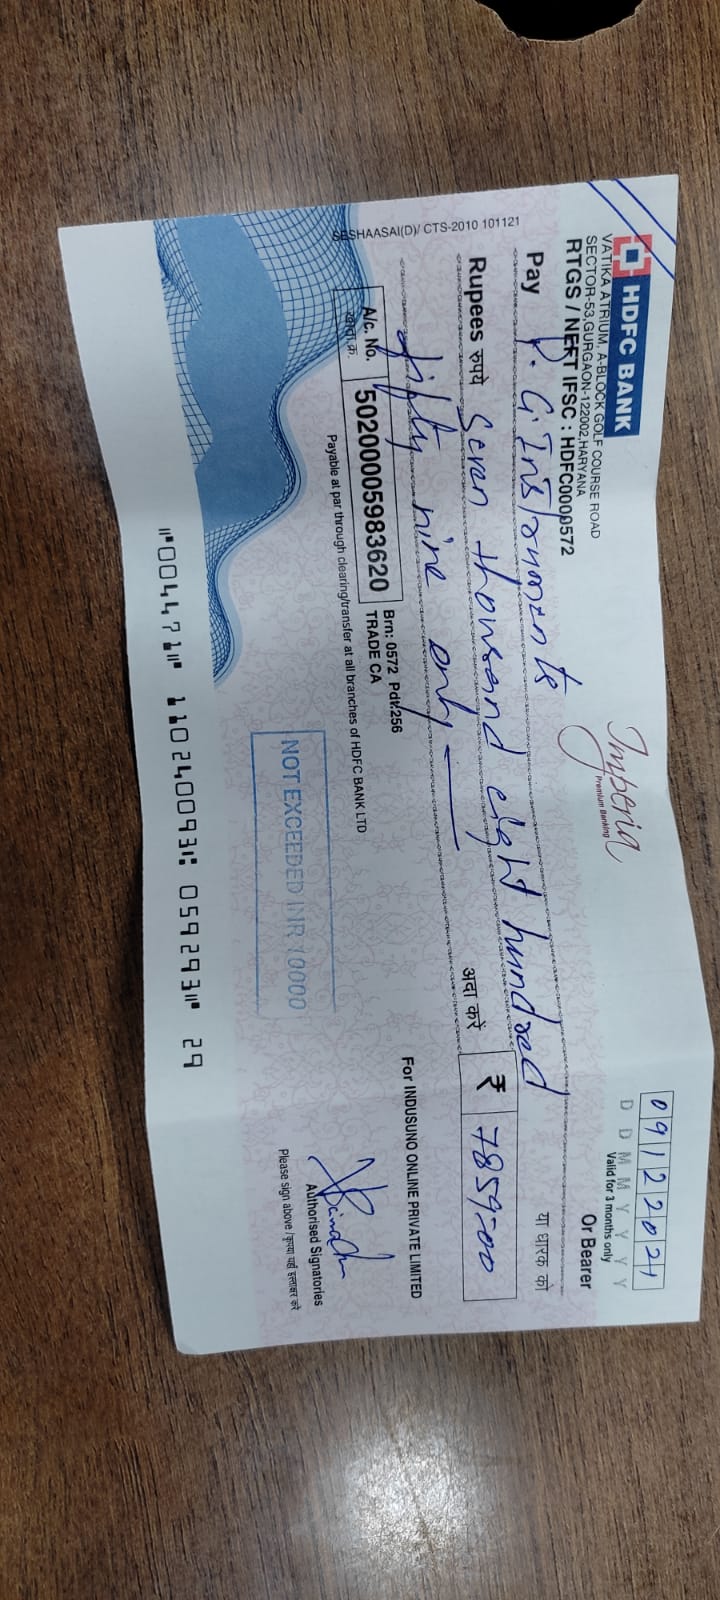 HDFC BANK
VATIKA ATRIUM, A-BLOCK GOLF COURSE ROAD
SECTOR-53, GURGAON-122002, HARYANA
RTGS / NEFT IFSC : HDFC0000572
Imperia
Premium Banking
09122021
D D M M Y Y Y Y
Valid for 3 months only
Pay P. G. Instruments
Or Bearer
या धारक को
Rupees रुपये Seven thousand eight hundred
fifty nine only
अदा करें
₹ 7859-00
A/c. No.
खाता क्र.
50200005983620
Brn: 0572 Pdt:256
TRADE CA
For INDUSUNO ONLINE PRIVATE LIMITED
Payable at par through clearing/transfer at all branches of HDFC BANK LTD
NOT EXCEEDED INR 10000
Authorised Signatories
Please sign above / कृपया यहाँ हस्ताक्षर करें
SESHAASAI(D)/ CTS-2010 101121
⑈004471⑈ 110240093⑆ 059293⑈ 29